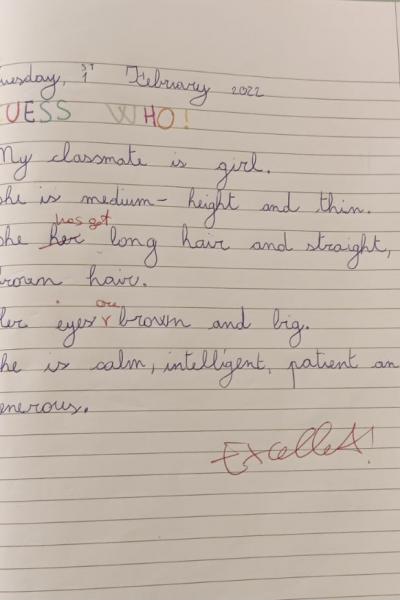 uesday, 1st February 2022
UESS WHO!
My classmate is girl.
he is medium- height and thin.
has got
he her long hair and straight,
rown hair.
are
er eyes brown and big.
he is calm, intelligent, patient an
enerous.
Excellent!